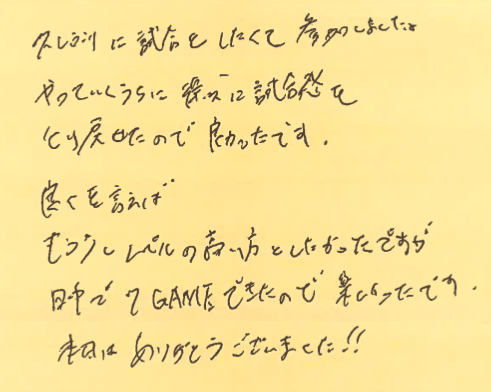 久しぶりに試合をしたくて参加しました。
やっていくうちに段々に試合感を
とり戻せたので良かったです。
良くを言えば
もう少しレベルの高い方としたかったですが
日中で7GAMEできたので楽しかったです。
本日はありがとうございました!!